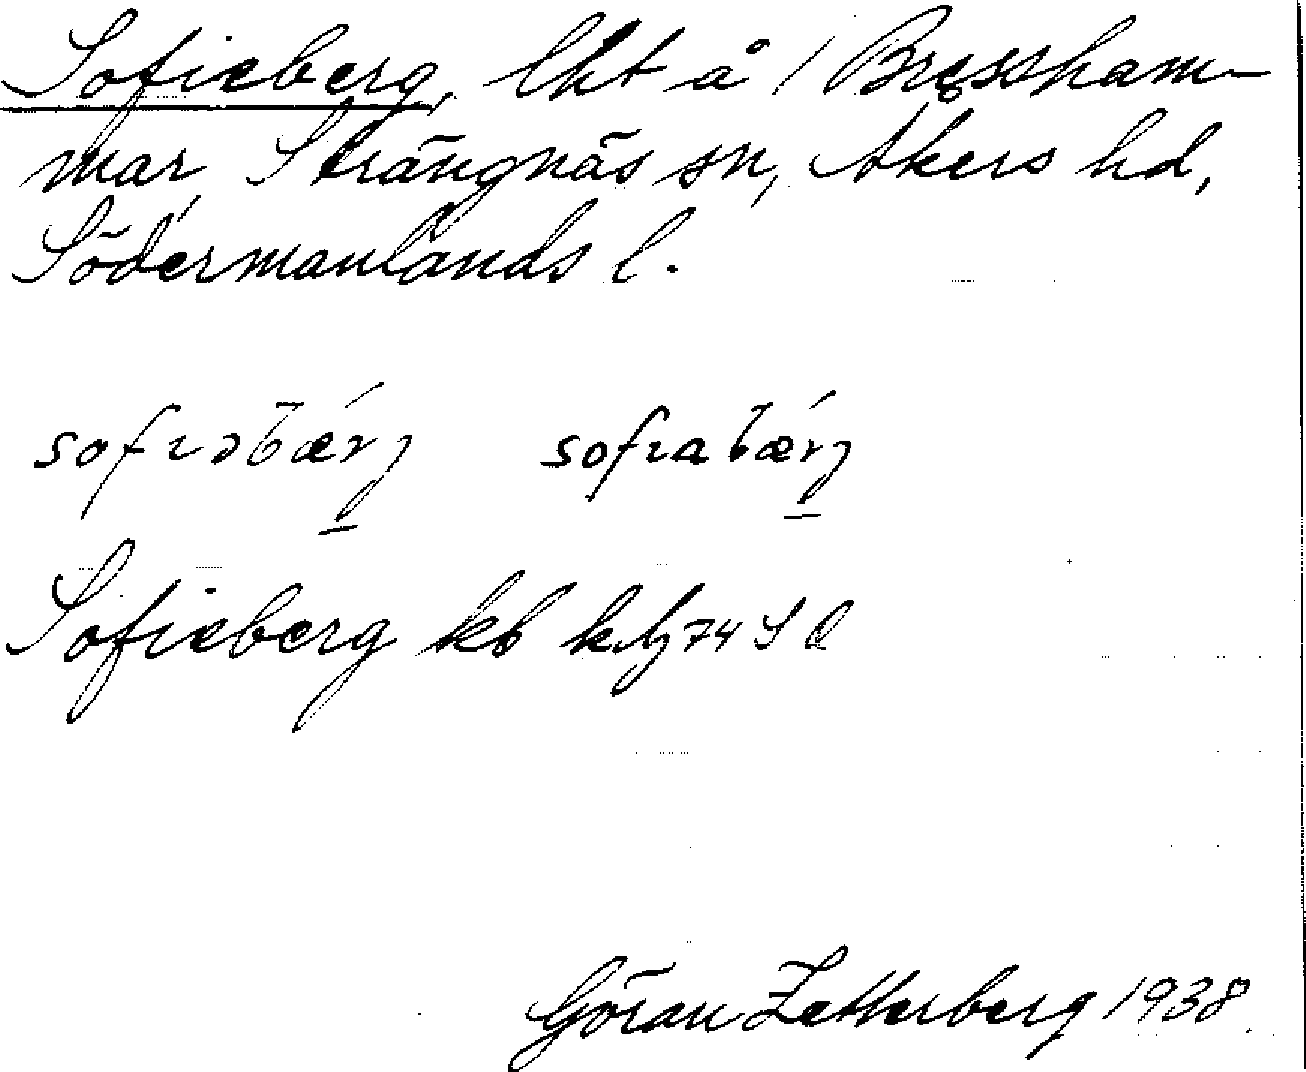 Sofieberg, lht å / Bressham-
mar, Strängnäs sn, Åkers hd,
Södermanlands l.
sofıəbærj sofıabærj
Sofieberg kb
Göran Zetterberg 1938